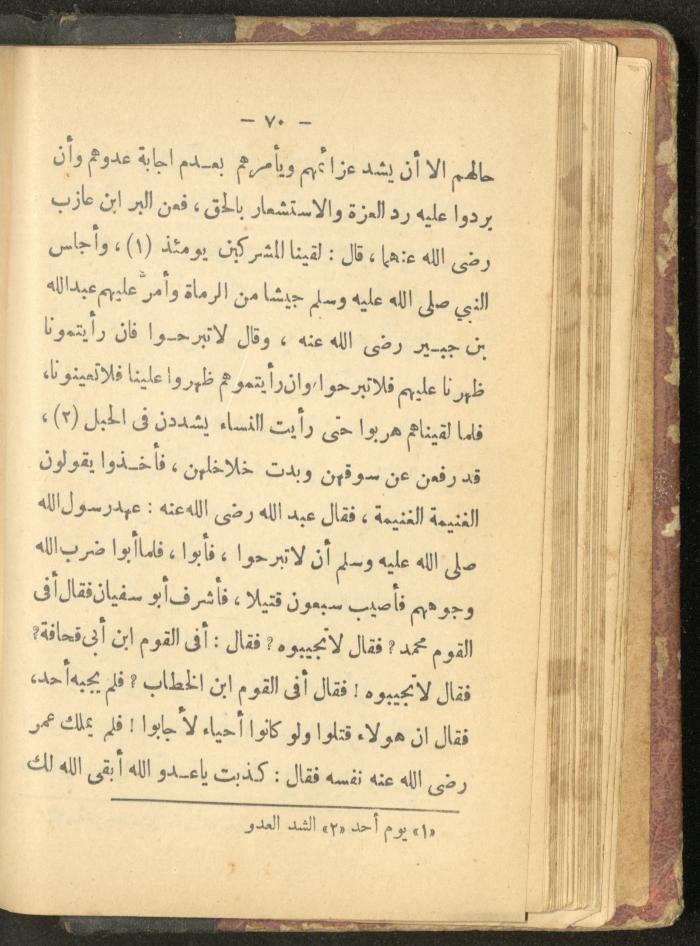 — ٧٠ —
حالهم الا أن يشد عزائمهم ويأمرهم بعـدم اجابة عدوهم وأن
يردوا عليه رد العزة والاستشعار بالحق ، فعن البر ابن عازب
رضى الله عنهما ، قال : لقينا المشركين يومئذ (١) ، وأجلس
النبي صلى الله عليه وسلم جيشا من الرماة وأمرّ عليهم عبدالله
بن جبـير رضى الله عنه ، وقال لاتبرحـوا فان رأيتمونا
ظهرنا عليهم فلاتبرحوا،وان رأيتموهم ظهروا علينا فلاتعينونا،
فلما لقيناهم هربوا حتى رأيت النساء يشددن فى الجبل (٢) ،
قد رفعن عن سوقهن وبدت خلاخلهن ، فأخـذوا يقولون
الغنيمة الغنيمة ، فقال عبد الله رضى الله عنه : عهد رسول الله
صلى الله عليه وسلم أن لاتبرحوا ، فأبوا ، فلما أبوا ضرب الله
وجوههم فأصيب سبعون قتيلا ، فأشرف أبو سفيان فقال أفى
القوم محمد ? فقال لاتجيبوه ? فقال : أفى القوم ابن أبى قحافة?
فقال لاتجيبوه ! فقال أفى القوم ابن الخطاب ? فلم يجبه أحد،
فقال ان هولاء قتلوا ولو كانوا أحياء لأجابوا ! فلم يملك عمر
رضى الله عنه نفسه فقال : كـذبت ياعـدو الله أبقى الله لك
«١» يوم أحد «٢» الشد العدو